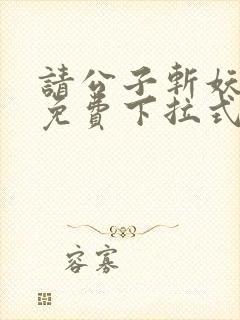 請公子斬妖
免費下拉式
容寡